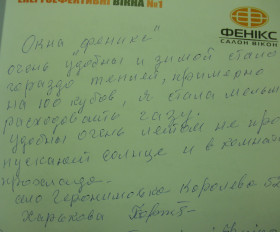 ЕНЕРГОЕФЕКТИВНІ ВІКНА №1
ФЕНІКС
САЛОН ВІКОН
Окна „феникс“
очень удобны и зимой стало
гораздо теплей, примерно
на 100 кубов, я стала меньш
расходовать газу.
удобны очень летом не про
пускает солнце и в комнат
прохлада
Королева 52
Харькова